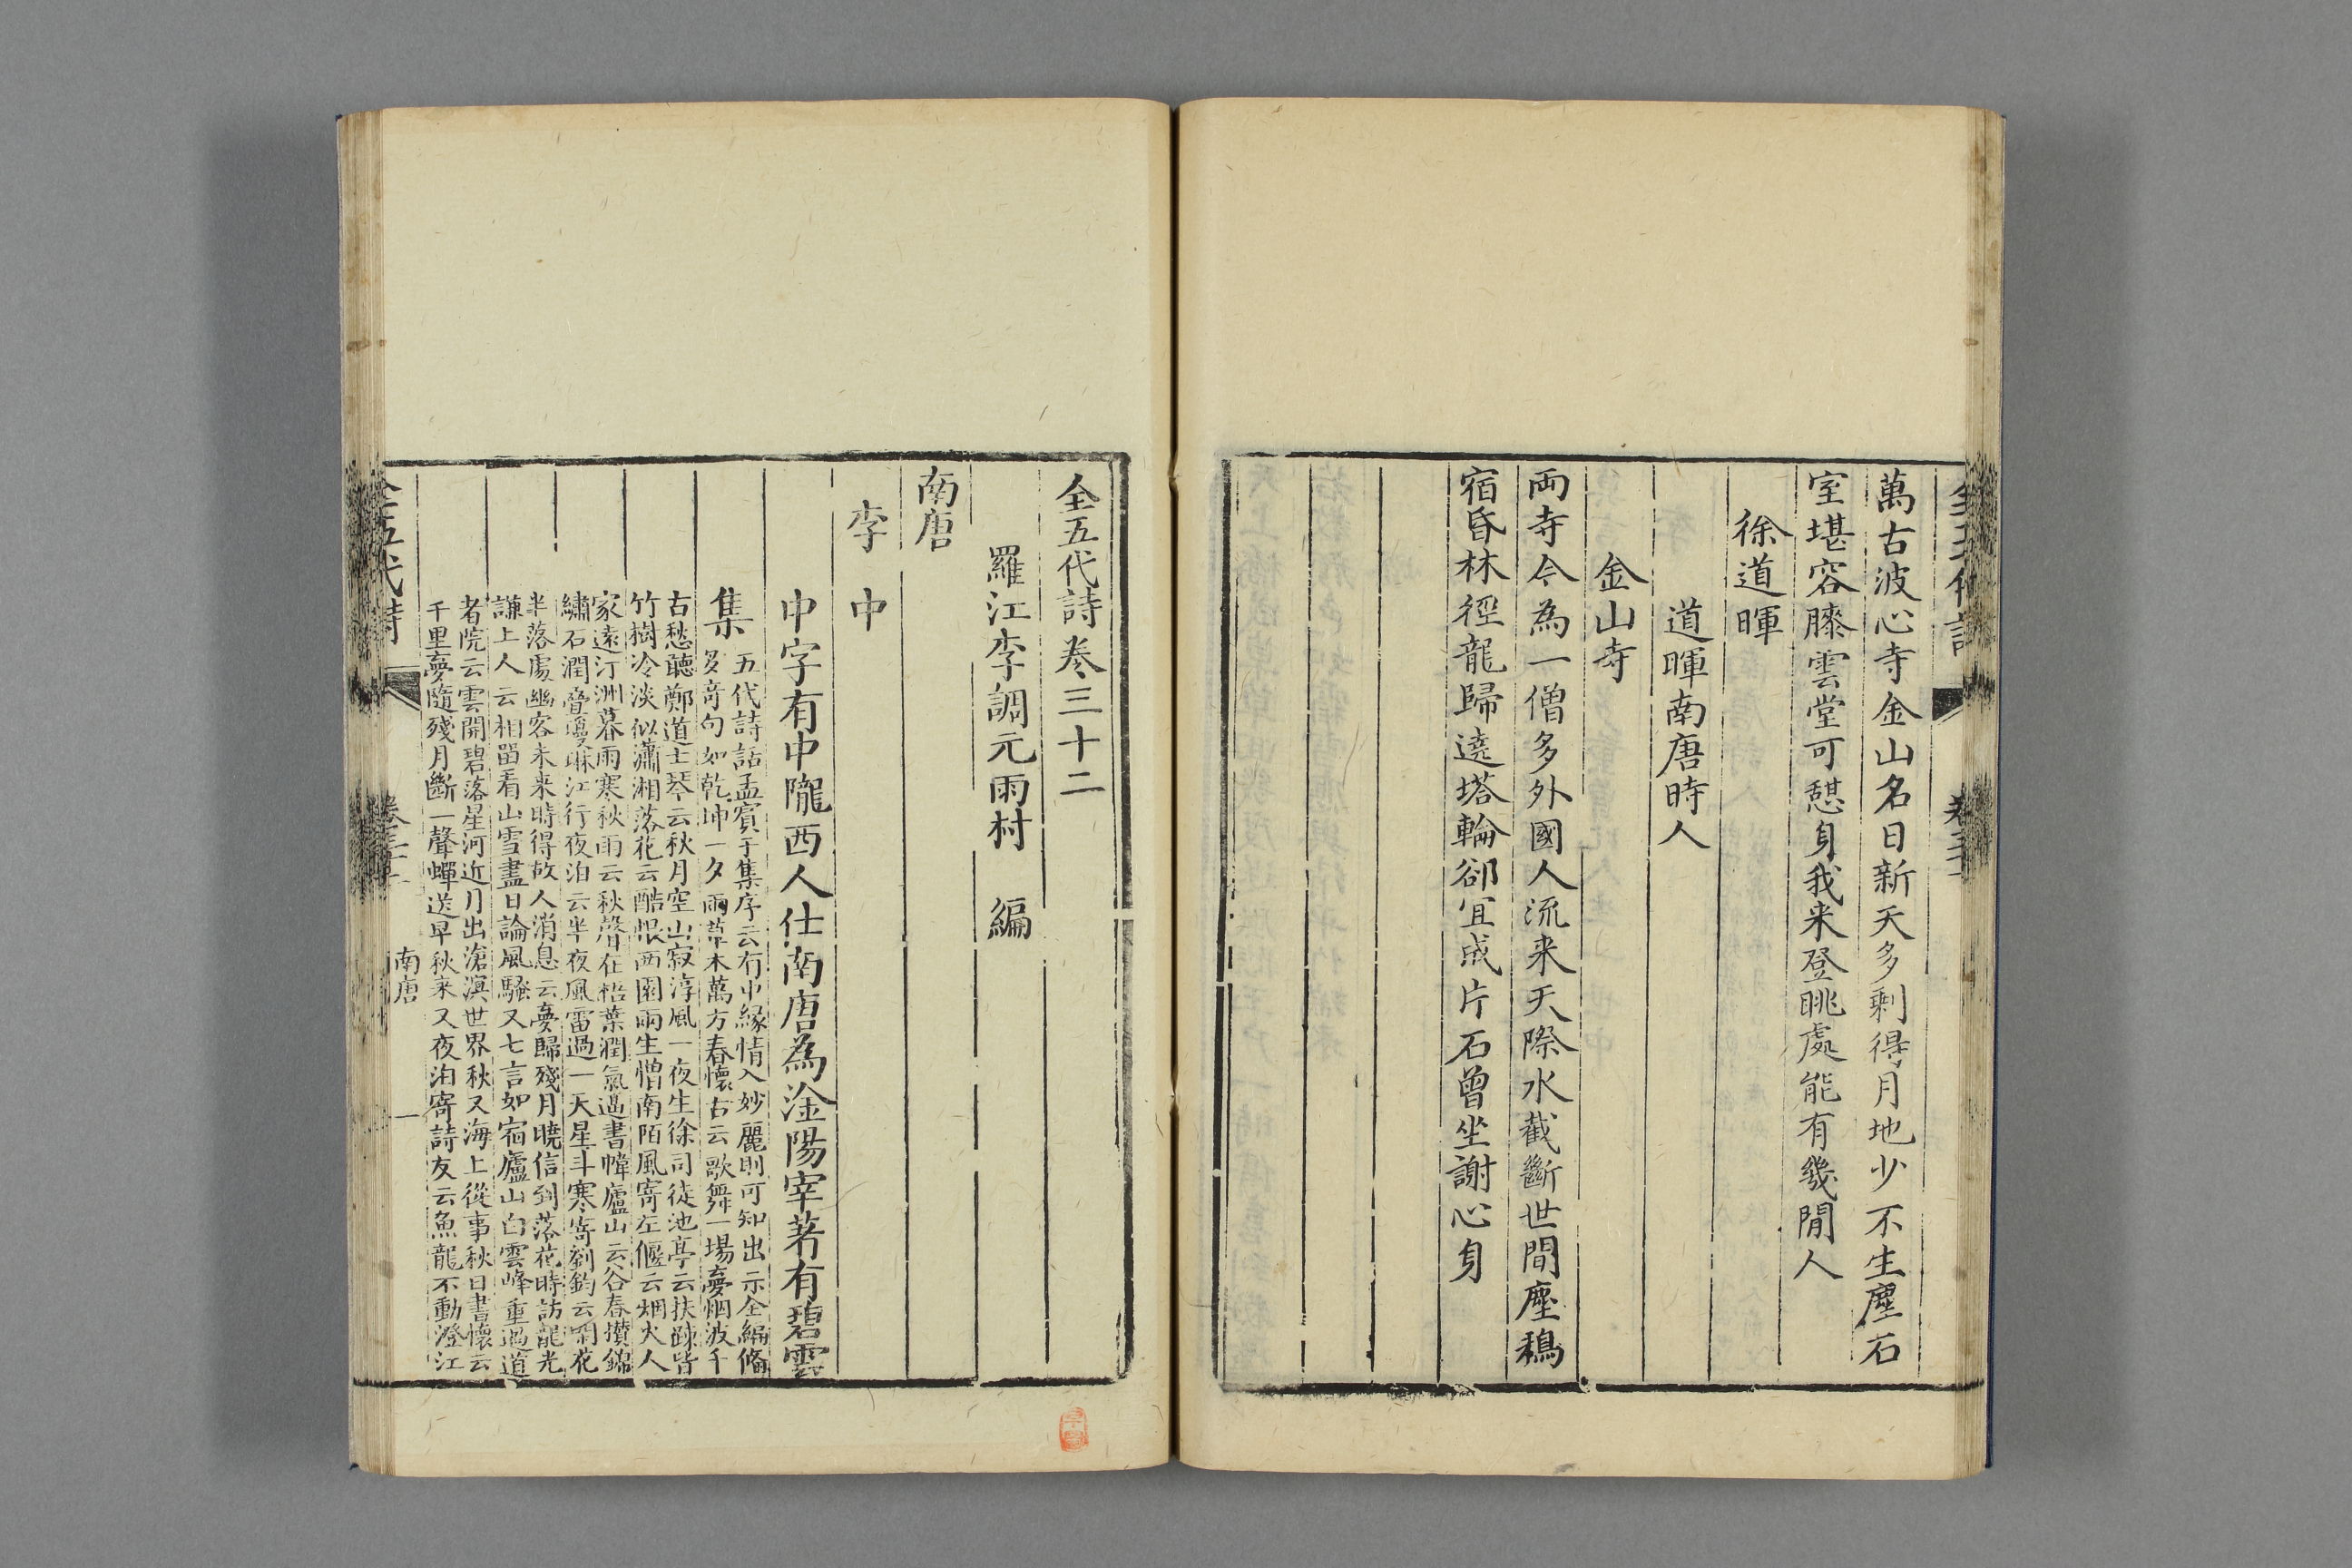 萬古波心寺金山名日新天多剩得月地少不生塵石
室堪容膝雲堂可憇身我来登眺處能有幾閒人
徐道暉
道暉南唐時人
金山寺
両寺今為一僧多外國人流来天際水截斷世間塵鵶
宿昏林徑龍歸遶塔輪郤宜成片石曾坐謝心身
全五代詩卷三十二
羅江李調元雨村 編
南唐
李中
中字有中隴西人仕南唐為淦陽宰著有碧雲
集
五代詩話孟賓于集序云有中緣情入妙麗則可知出示全編偹
多竒句如乾坤一夕雨草木萬方春懷古云歌舞一塲夢烟波千
古愁聽鄭道士琴云秋月空山寂淳風一夜生徐司徒池亭云扶踈皆
竹樹冷淡似瀟湘落花云酷恨西園雨生憎南陌風寄左偃云烟火人
家遠汀洲暮雨寒秋雨云秋聲在梧葉潤氣逼書幃廬山云谷春攅錦
繡石潤疊瓊琳江行夜泊云半夜風雷過一天星斗寒寄劉鈞云閒花
半落處幽客未来時得故人消息云夢歸殘月曉信到落花時訪龍光
謙上人云相留看山雪盡日論風騷又七言如宿廬山白雲峰重過道
者院云雲開碧落星河近月出滄溟世界秋又海上從事秋日書懷云
千里夢隨殘月斷一聲蟬送早秋来又夜泊寄詩友云魚龍不動澄江
全五代詩
南唐
一